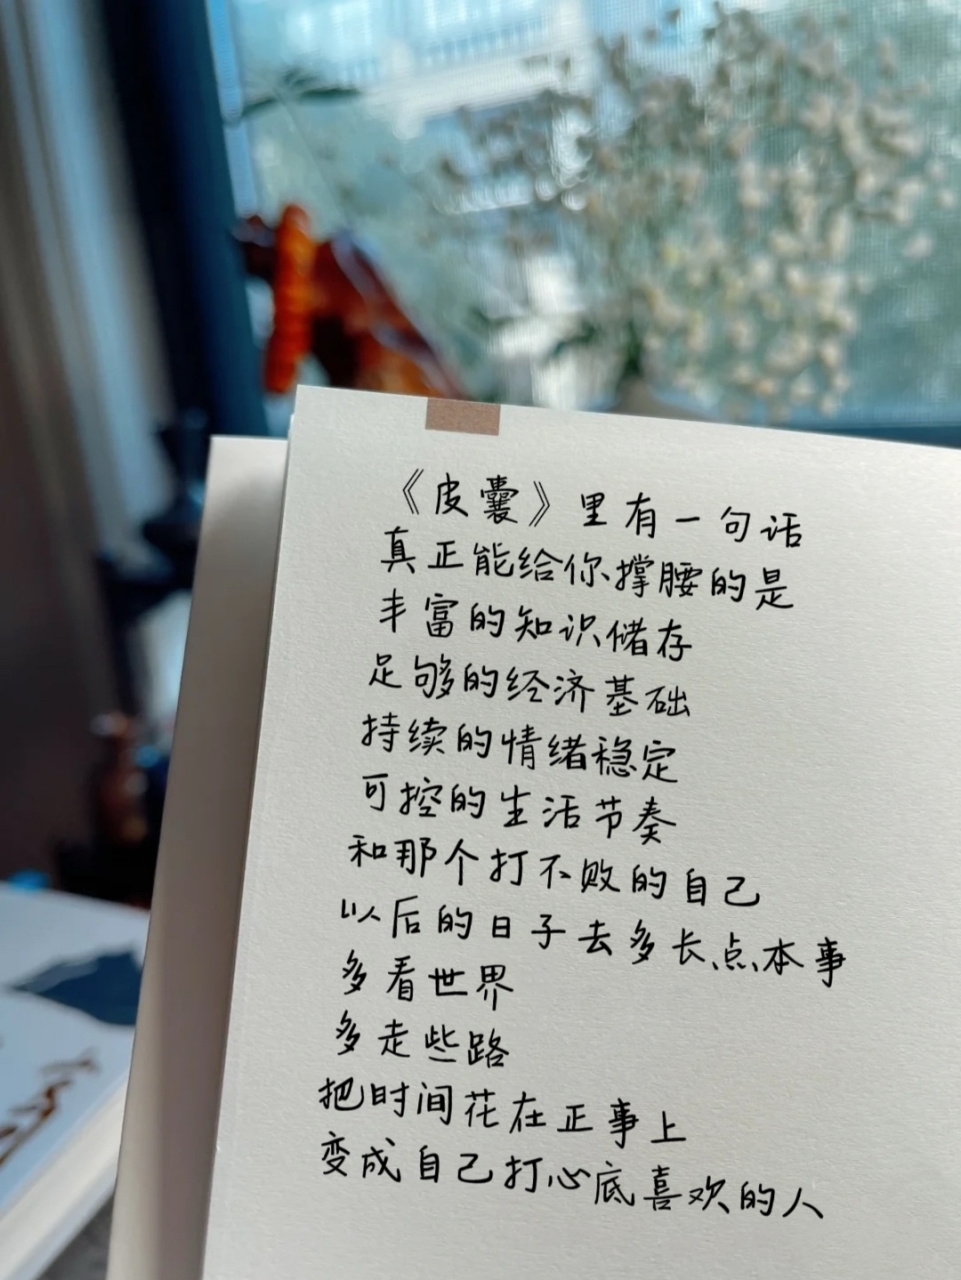 《皮囊》里有一句话
真正能给你撑腰的是
丰富的知识储存
足够的经济基础
持续的情绪稳定
可控的生活节奏
和那个打不败的自己
以后的日子去多长点本事
多看世界
多走些路
把时间花在正事上
变成自己打心底喜欢的人